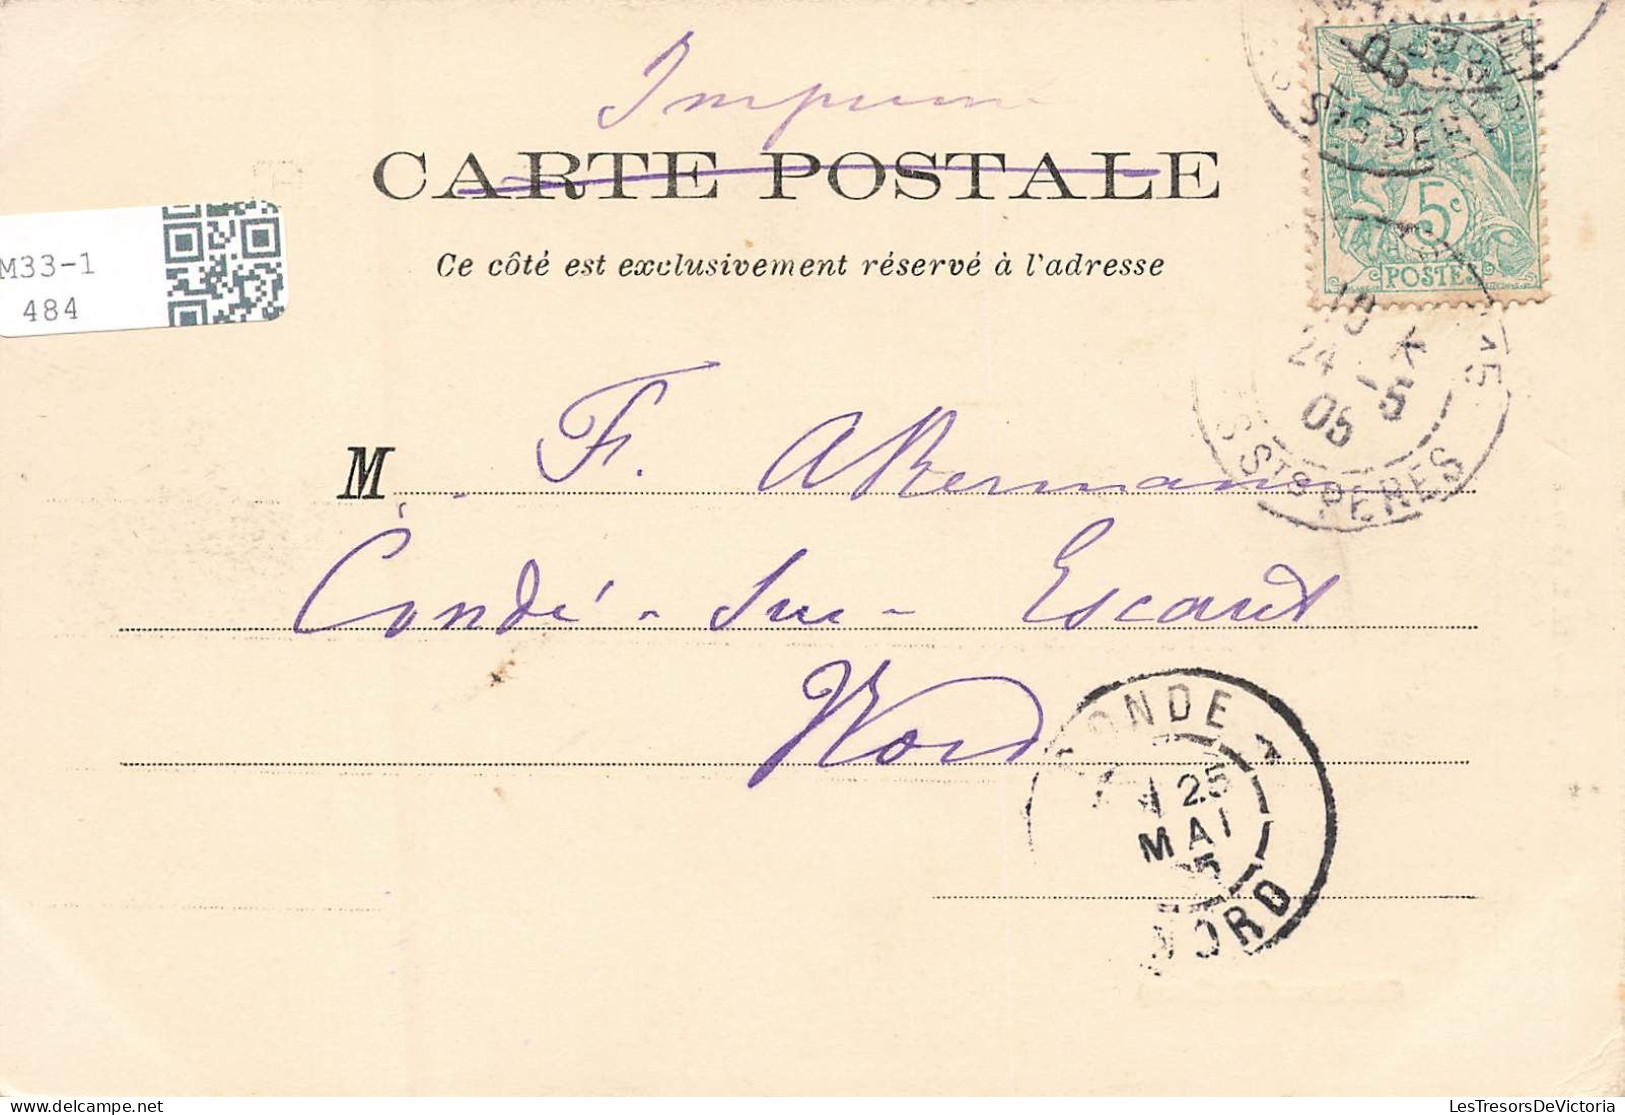 Imprimé
CARTE POSTALE
Ce côté est exclusivement réservé à l'adresse
M33-1
484
5c
POSTES
15
10 K
24 -5
05
R. DES STS PERES
M. F. Akermann
Condé-sur-Escaut
Nord
CONDE
25
MAI
05
NORD
LesTresorsDeVictoria